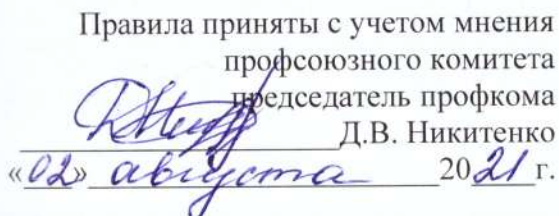 Правила приняты с учетом мнения
профсоюзного комитета
председатель профкома
Д.В. Никитенко
«02» августа 2021 г.